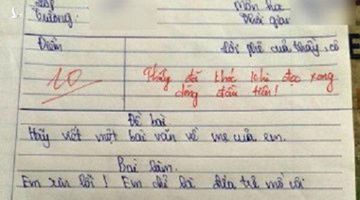 Lớp Môn học
Trường: Thời gian
Điểm Lời phê của thầy, cô
10 Thầy đã khóc khi đọc xong
dòng đầu tiên!
Đề bài
Hãy viết một bài văn về mẹ của em.
Bài làm.
Em xin lỗi! Em chỉ là đứa trẻ mồ côi